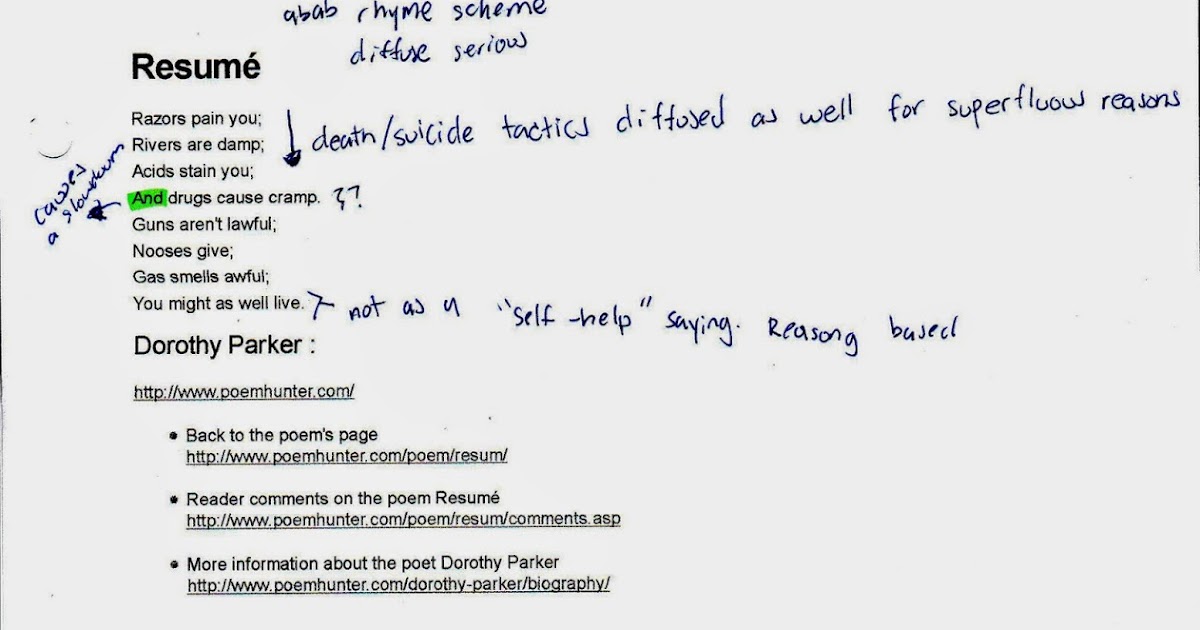 abab rhyme scheme
diffuse serious
Resumé
Razors pain you;
Rivers are damp;
Acids stain you;
And drugs cause cramp. ??
Guns aren't lawful;
Nooses give;
Gas smells awful;
You might as well live.
death/suicide tactics diffused as well for superfluous reasons
causes
a slowdown
not as a "self-help" saying. Reasong based
Dorothy Parker :
http://www.poemhunter.com/
• Back to the poem's page
http://www.poemhunter.com/poem/resum/
• Reader comments on the poem Resumé
http://www.poemhunter.com/poem/resum/comments.asp
• More information about the poet Dorothy Parker
http://www.poemhunter.com/dorothy-parker/biography/